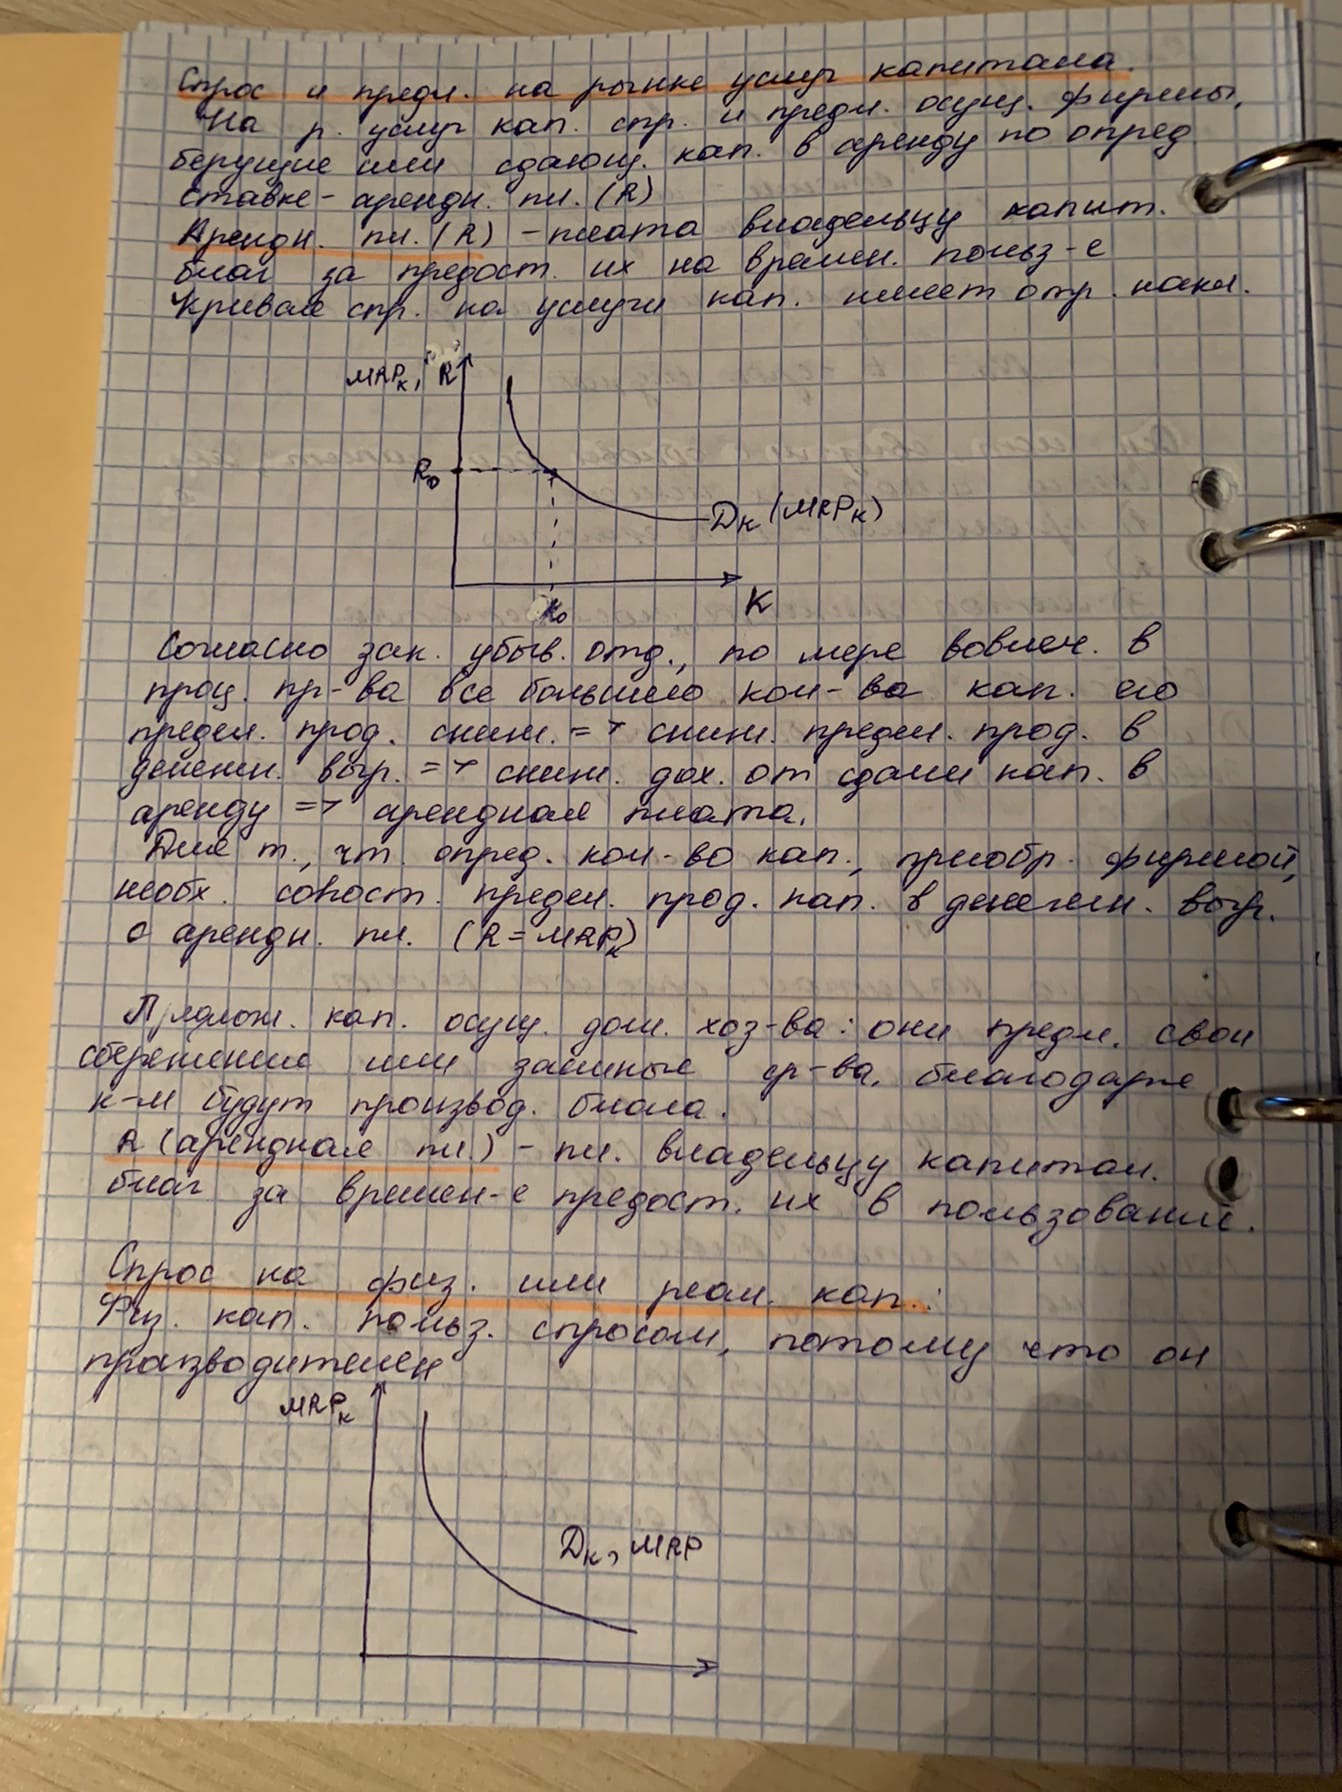 Спрос и предл. на рынке услуг капитала.
На р. услуг кап. спр. и предл. осущ. фирмы,
берущие или сдающ. кап. в аренду по опред.
ставке - арендн. пл. (R)
Арендн. пл. (R) - плата владельцу капит.
благ за предост. их на времен. польз-е
Кривая спр. на услуги кап. имеет отр. накл.
MRPк, R
R₀
Dк (MRPк)
K
K₀
Согласно зак. убыв. отд., по мере вовлеч. в
проц. пр-ва все большего кол-ва кап. его
предел. прод. сниж. => сниж. предел. прод. в
денежн. выр. => сниж. дох. от сдачи кап. в
аренду => арендная плата.
Для т., чт. опред. кол-во кап., приобр. фирмой,
необх. сопост. предел. прод. кап. в денежн. выр.
с арендн. пл. (R = MRPк)
Предлож. кап. осущ. дом. хоз-ва: они предл. свои
сбережения или заемные ср-ва, благодаря
к-м будут производ. блага.
R (арендная пл.) - пл. владельцу капитал.
благ за времен-е предост. их в пользование.
Спрос на физ. или реал. кап.:
Физ. кап. польз. спросом, потому что он
производителен
MRPк
Dк, MRP